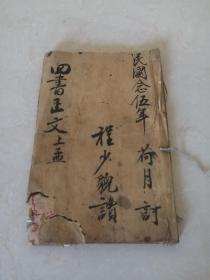 民國念伍年 荷月 訂
程少貌讀
四書正文 上孟